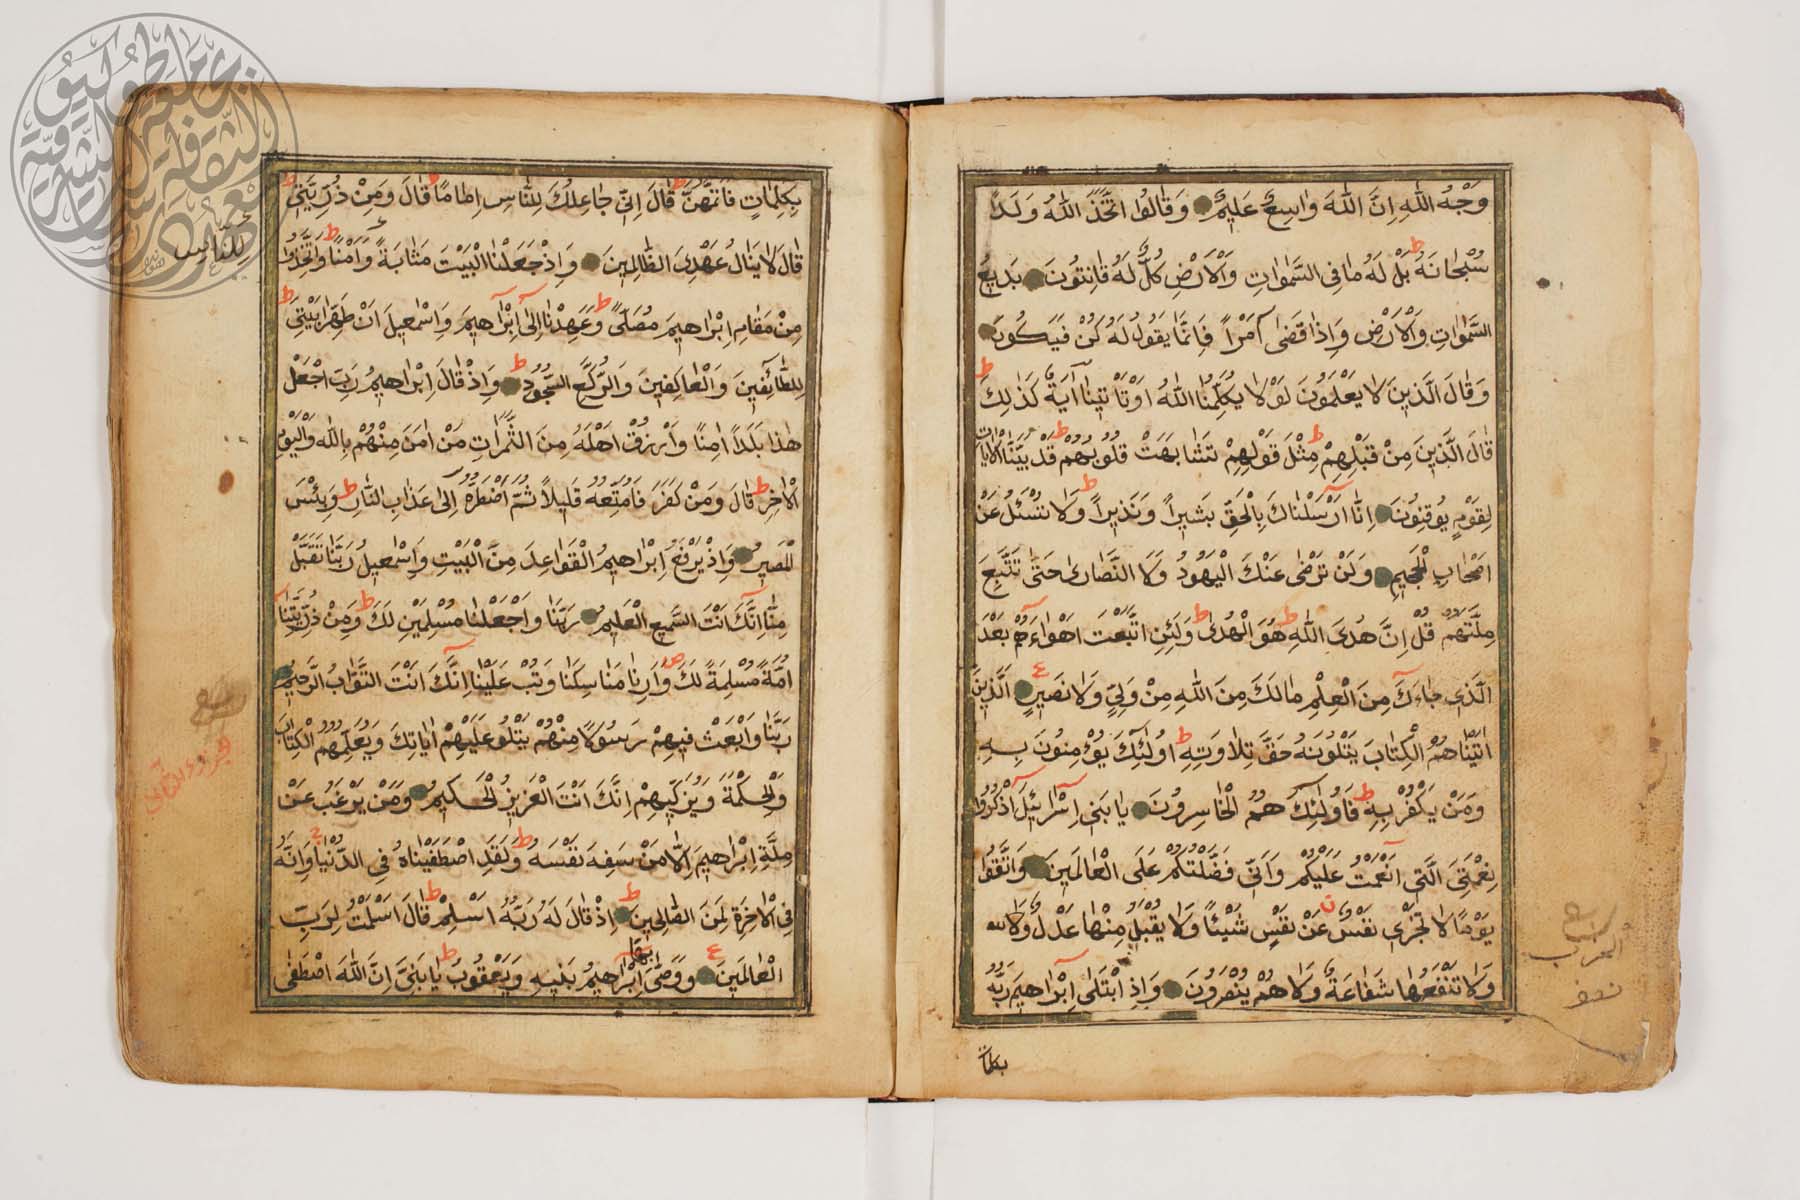 وَجْهُ اللّٰهِ اِنَّ اللّٰهَ وَاسِعٌ عَلِيمٌ وَقَالُوا اتَّخَذَ اللّٰهُ وَلَدًا
سُبْحَانَهُ ط بَلْ لَهُ مَا فِي السَّمٰوَاتِ وَالْاَرْضِ كُلٌّ لَهُ قَانِتُونَ بَدِيعُ
السَّمٰوَاتِ وَالْاَرْضِ وَاِذَا قَضٰى اَمْرًا فَاِنَّمَا يَقُولُ لَهُ كُنْ فَيَكُونُ
وَقَالَ الَّذِينَ لَا يَعْلَمُونَ لَوْلَا يُكَلِّمُنَا اللّٰهُ اَوْ تَأْتِينَا اٰيَةٌ كَذٰلِكَ ط
قَالَ الَّذِينَ مِنْ قَبْلِهِمْ مِثْلَ قَوْلِهِمْ ط تَشَابَهَتْ قُلُوبُهُمْ ط قَدْ بَيَّنَّا الْاٰيَاتِ
لِقَوْمٍ يُوقِنُونَ اِنَّا اَرْسَلْنَاكَ بِالْحَقِّ بَشِيرًا وَنَذِيرًا ط وَلَا تُسْئَلُ عَنْ
اَصْحَابِ الْجَحِيمِ وَلَنْ تَرْضٰى عَنْكَ الْيَهُودُ وَلَا النَّصَارٰى حَتّٰى تَتَّبِعَ
مِلَّتَهُمْ قُلْ اِنَّ هُدَى اللّٰهِ ط هُوَ الْهُدٰى ط وَلَئِنِ اتَّبَعْتَ اَهْوَاءَهُمْ بَعْدَ
الَّذِي جَاءَكَ مِنَ الْعِلْمِ مَا لَكَ مِنَ اللّٰهِ مِنْ وَلِيٍّ وَلَا نَصِيرٍ ع الَّذِينَ
اٰتَيْنَاهُمُ الْكِتَابَ يَتْلُونَهُ حَقَّ تِلَاوَتِهِ ط اُولٰئِكَ يُؤْمِنُونَ بِهِ
وَمَنْ يَكْفُرْ بِهِ ط فَاُولٰئِكَ هُمُ الْخَاسِرُونَ يَا بَنِي اِسْرَائِلَ اذْكُرُوا
نِعْمَتِيَ الَّتِي اَنْعَمْتُ عَلَيْكُمْ وَاَنِّي فَضَّلْتُكُمْ عَلَى الْعَالَمِينَ وَاتَّقُوا
يَوْمًا لَا تَجْزِي نَفْسٌ عَنْ نَفْسٍ شَيْئًا وَلَا يُقْبَلُ مِنْهَا عَدْلٌ وَلَا
وَلَا تَنْفَعُهَا شَفَاعَةٌ وَلَا هُمْ يُنْصَرُونَ وَاِذِ ابْتَلٰى اِبْرٰاهِيمَ رَبُّهُ
الحزب
نصف
بكلمات
بِكَلِمَاتٍ فَاَتَمَّهُنَّ ط قَالَ اِنِّي جَاعِلُكَ لِلنَّاسِ اِمَامًا ط قَالَ وَمِنْ ذُرِّيَّتِي ط
قَالَ لَا يَنَالُ عَهْدِي الظَّالِمِينَ وَاِذْ جَعَلْنَا الْبَيْتَ مَثَابَةً وَاَمْنًا ط وَاتَّخِذُوا
للناس
مِنْ مَقَامِ اِبْرٰاهِيمَ مُصَلًّى ط وَعَهِدْنَا اِلٰى اِبْرٰاهِيمَ وَاِسْمٰعِيلَ اَنْ طَهِّرَا بَيْتِيَ
لِلطَّائِفِينَ وَالْعَاكِفِينَ وَالرُّكَّعِ السُّجُودِ ط وَاِذْ قَالَ اِبْرٰاهِيمُ رَبِّ اجْعَلْ
هٰذَا بَلَدًا اٰمِنًا وَارْزُقْ اَهْلَهُ مِنَ الثَّمَرَاتِ مَنْ اٰمَنَ مِنْهُمْ بِاللّٰهِ وَالْيَوْمِ
الْاٰخِرِ ط قَالَ وَمَنْ كَفَرَ فَاُمَتِّعُهُ قَلِيلًا ثُمَّ اَضْطَرُّهُ اِلٰى عَذَابِ النَّارِ ط وَبِئْسَ
الْمَصِيرُ وَاِذْ يَرْفَعُ اِبْرٰاهِيمُ الْقَوَاعِدَ مِنَ الْبَيْتِ وَاِسْمٰعِيلُ رَبَّنَا تَقَبَّلْ
مِنَّا اِنَّكَ اَنْتَ السَّمِيعُ الْعَلِيمُ رَبَّنَا وَاجْعَلْنَا مُسْلِمَيْنِ لَكَ ط وَمِنْ ذُرِّيَّتِنَا
اُمَّةً مُسْلِمَةً لَكَ ص وَاَرِنَا مَنَاسِكَنَا وَتُبْ عَلَيْنَا اِنَّكَ اَنْتَ التَّوَّابُ الرَّحِيمُ
رَبَّنَا وَابْعَثْ فِيهِمْ رَسُولًا مِنْهُمْ يَتْلُو عَلَيْهِمْ اٰيَاتِكَ وَيُعَلِّمُهُمُ الْكِتَابَ
وَالْحِكْمَةَ وَيُزَكِّيهِمْ اِنَّكَ اَنْتَ الْعَزِيزُ الْحَكِيمُ وَمَنْ يَرْغَبُ عَنْ
مِلَّةِ اِبْرٰاهِيمَ اِلَّا مَنْ سَفِهَ نَفْسَهُ ط وَلَقَدِ اصْطَفَيْنَاهُ فِي الدُّنْيَا وَاِنَّهُ
فِي الْاٰخِرَةِ لَمِنَ الصَّالِحِينَ ط اِذْ قَالَ لَهُ رَبُّهُ اَسْلِمْ ط قَالَ اَسْلَمْتُ لِرَبِّ
الْعَالَمِينَ ع وَوَصّٰى بها اِبْرٰاهِيمُ بَنِيهِ وَيَعْقُوبُ ط يَا بَنِيَّ اِنَّ اللّٰهَ اصْطَفٰى